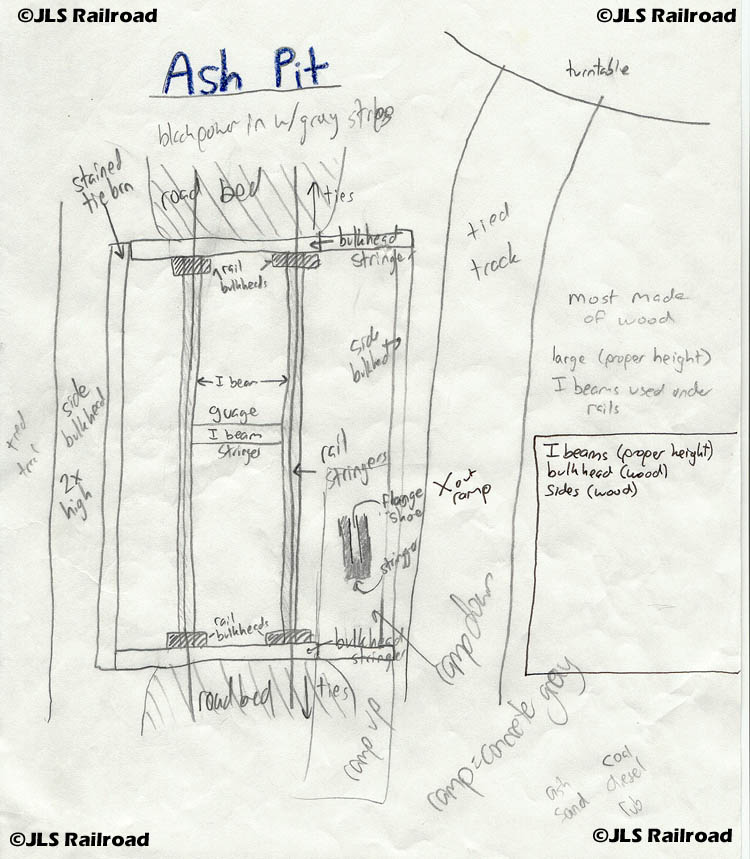 ©JLS Railroad
©JLS Railroad
Ash Pit
turntable
blackpower in w/ gray strips
stained
tie brn
road bed
ties
bulkhead
stringer
rail
bulkheads
tied
track
most made
of wood
large (proper height)
I beams used under
rails
side
bulkhead
side
bulkhead
2x
high
I beam
guage
I beam
stringes
rail
stringers
flange
shoe
stringer
X out
ramp
I beams (proper height)
bulkhead (wood)
Sides (wood)
rail
bulkheads
bulkhead
stringer
ramp down
roadbed
ties
ramp up
ramp=concrete gray
ash
sand
coal
diesel
lub
©JLS Railroad
©JLS Railroad